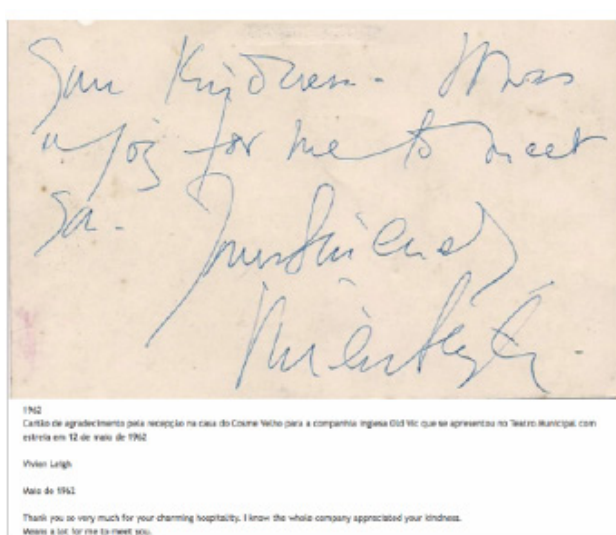 your kindness. It was
a joy for me to meet
you.
Yours sincerely
Vivien Leigh.
1962
Cartão de agradecimento pela recepção na casa do Cosme Velho para a companhia inglesa Old Vic que se apresentou no Teatro Municipal com
estreia em 12 de maio de 1962
Vivien Leigh
Maio de 1962
Thank you so very much for your charming hospitality. I know the whole company appreciated your kindness.
Means a lot for me to meet you.